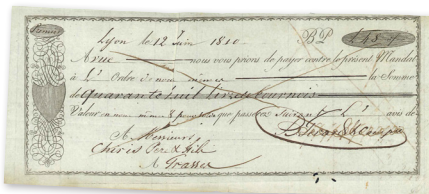 Lyon le 12 Juin 1810 BP
A vue nous vous prions de payer contre le présent Mandat
à L' Ordre de nous mêmes la Somme
de Quarante huit livres tournois
Valeur en nous mêmes que passerez Suivant L' avis de
A Messieurs
Chiris Per & fils
A Grasse